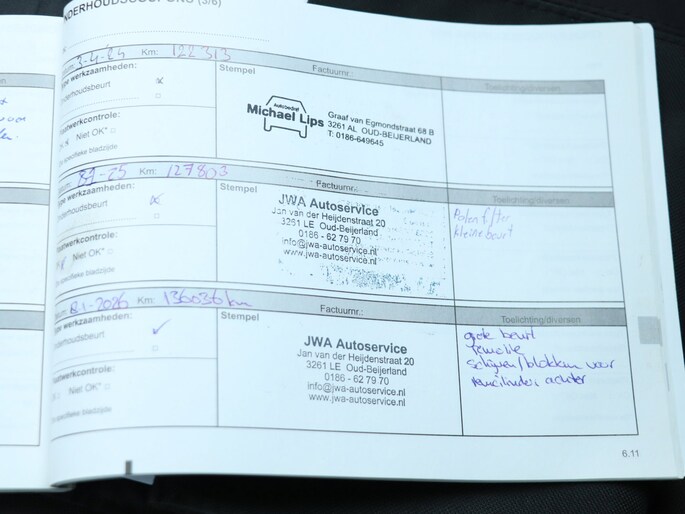 NDERHOUDSBEURT
(3/6)
3-4-25 Km: 122313
Type werkzaamheden:
nderhoudsbeurt
Niet OK*
specifieke bladzijde
Stempel
Factuurnr.:
Toelichting/diversen
Autobedrijf
Michael Lips
Graaf van Egmondstraat 68 B
3261 AL OUD-BEIJERLAND
T: 0186-649645
-25 Km: 127803
Type werkzaamheden:
nderhoudsbeurt
Niet OK*
specifieke bladzijde
Stempel
Factuurnr.:
Toelichting/diversen
JWA Autoservice
Jan van der Heijdenstraat 20
3261 LE Oud-Beijerland
0186 - 62 79 70
info@jwa-autoservice.nl
www.jwa-autoservice.nl
Polen filter
kleine beurt
8-1-2026 Km: 136036 km
ype werkzaamheden:
nderhoudsbeurt
Niet OK*
specifieke bladzijde
Stempel
Factuurnr.:
Toelichting/diversen
JWA Autoservice
Jan van der Heijdenstraat 20
3261 LE Oud-Beijerland
0186 - 62 79 70
info@jwa-autoservice.nl
www.jwa-autoservice.nl
grote beurt
remolie
schijven/blokken voor
remcilinder achter
6.11